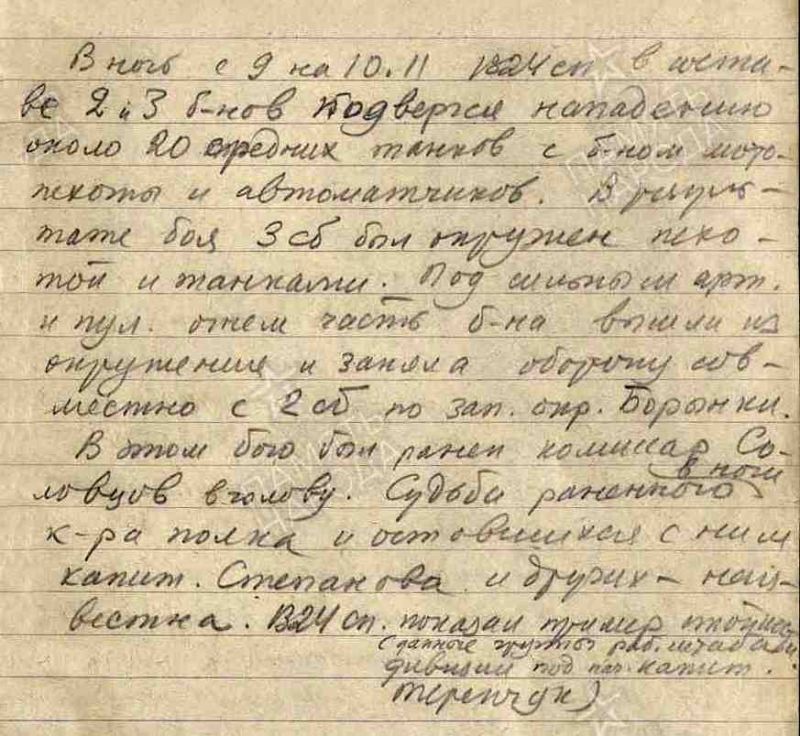 В ночь с 9 на 10.11 1324 сп в соста-
ве 2 и 3 б-нов подвергся нападению
около 20 средних танков с б-ном мото-
пехоты и автоматчиков. В резуль-
тате боя 3 сб был окружен пехо-
той и танками. Под сильным арт.
и пул. огнем часть б-на вышли из
окружения и заняла оборону сов-
местно с 2 сб по зап. окр. Борынки.
В этом бою был ранен комиссар Со-
ловцов в голову. Судьба раненного в ноги
к-ра полка и оставшихся с ним
капит. Степанова и других - неиз-
вестна. 1324 сп. показал пример
(данные группы раб. штаба
дивизии под нач. капит.
Теренчук)